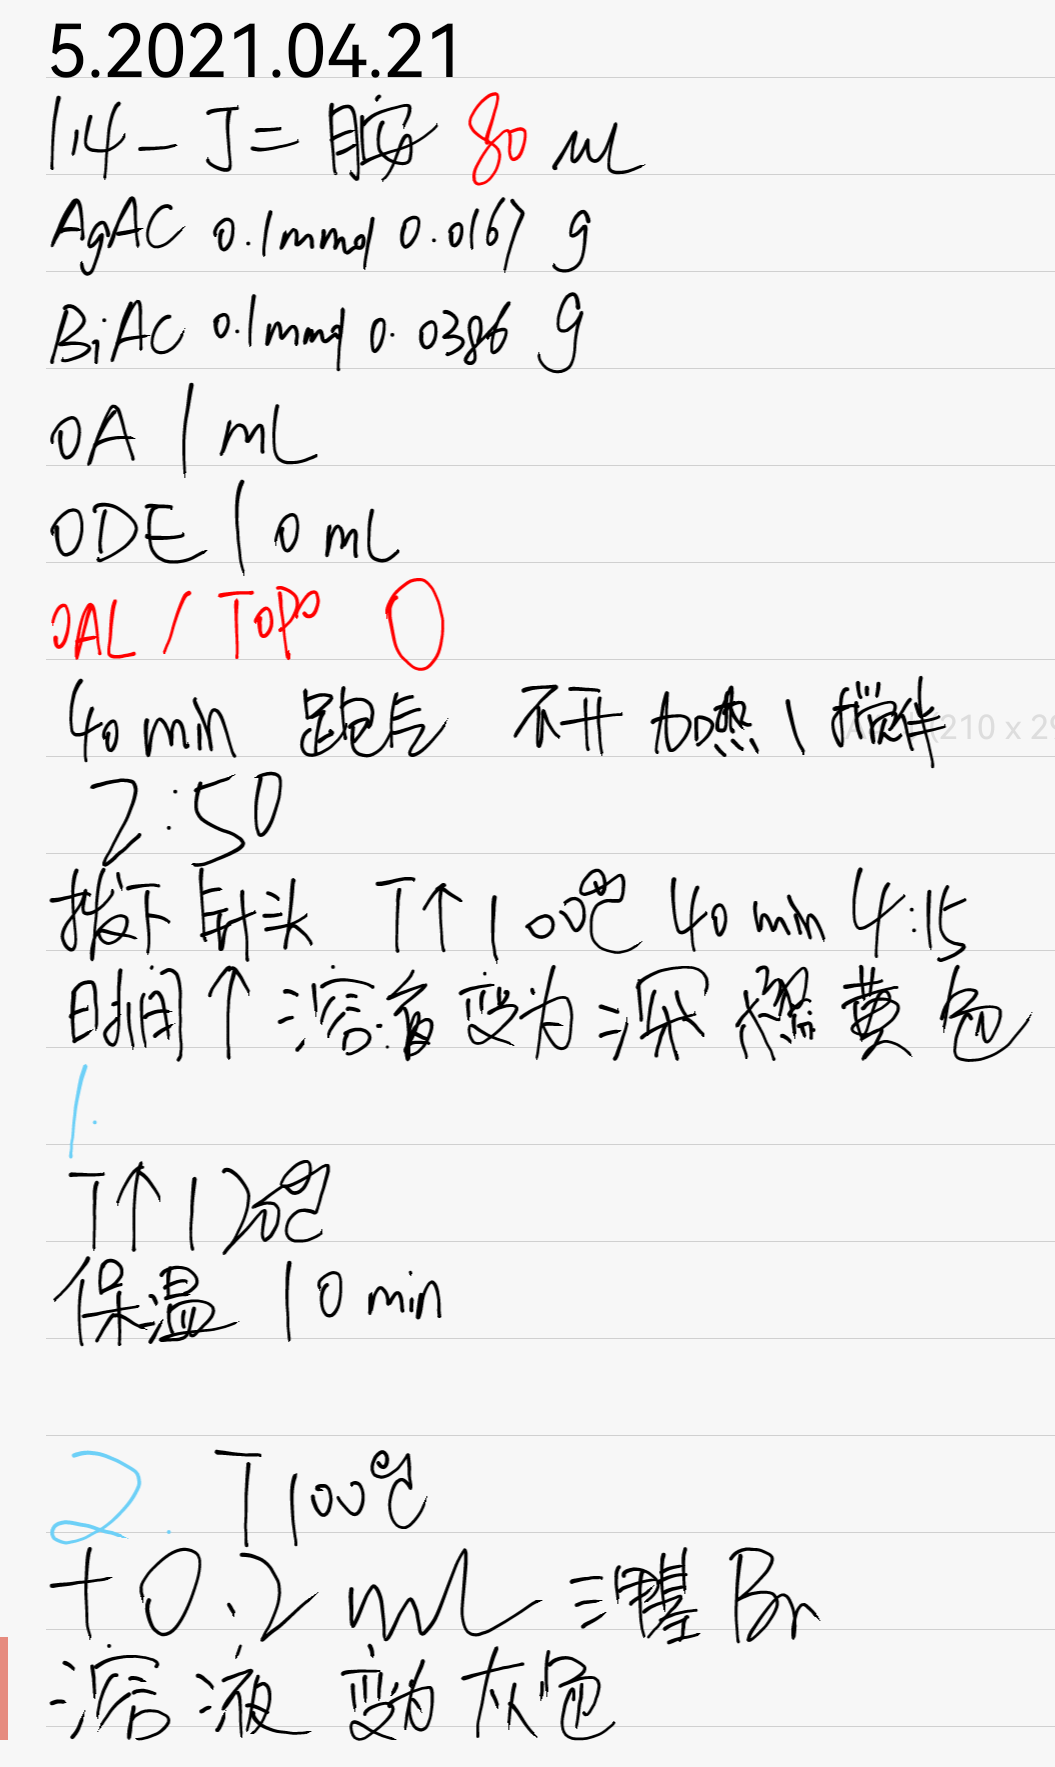 5.2021.04.21
1.4-丁二胺 80 uL
AgAC 0.1mmol 0.0167 g
BiAC 0.1mmol 0.0386 g
OA 1 mL
ODE 10 mL
OAL / TOPO 0
40 min 跑后 不开加热、搅拌
2:50
拔下针头 T↑100℃ 40 min 4:15
时间↑溶液变为深橙黄色
1.
T↑120℃
保温 10 min
2. T100℃
+0.2 mL Br
溶液变为灰色